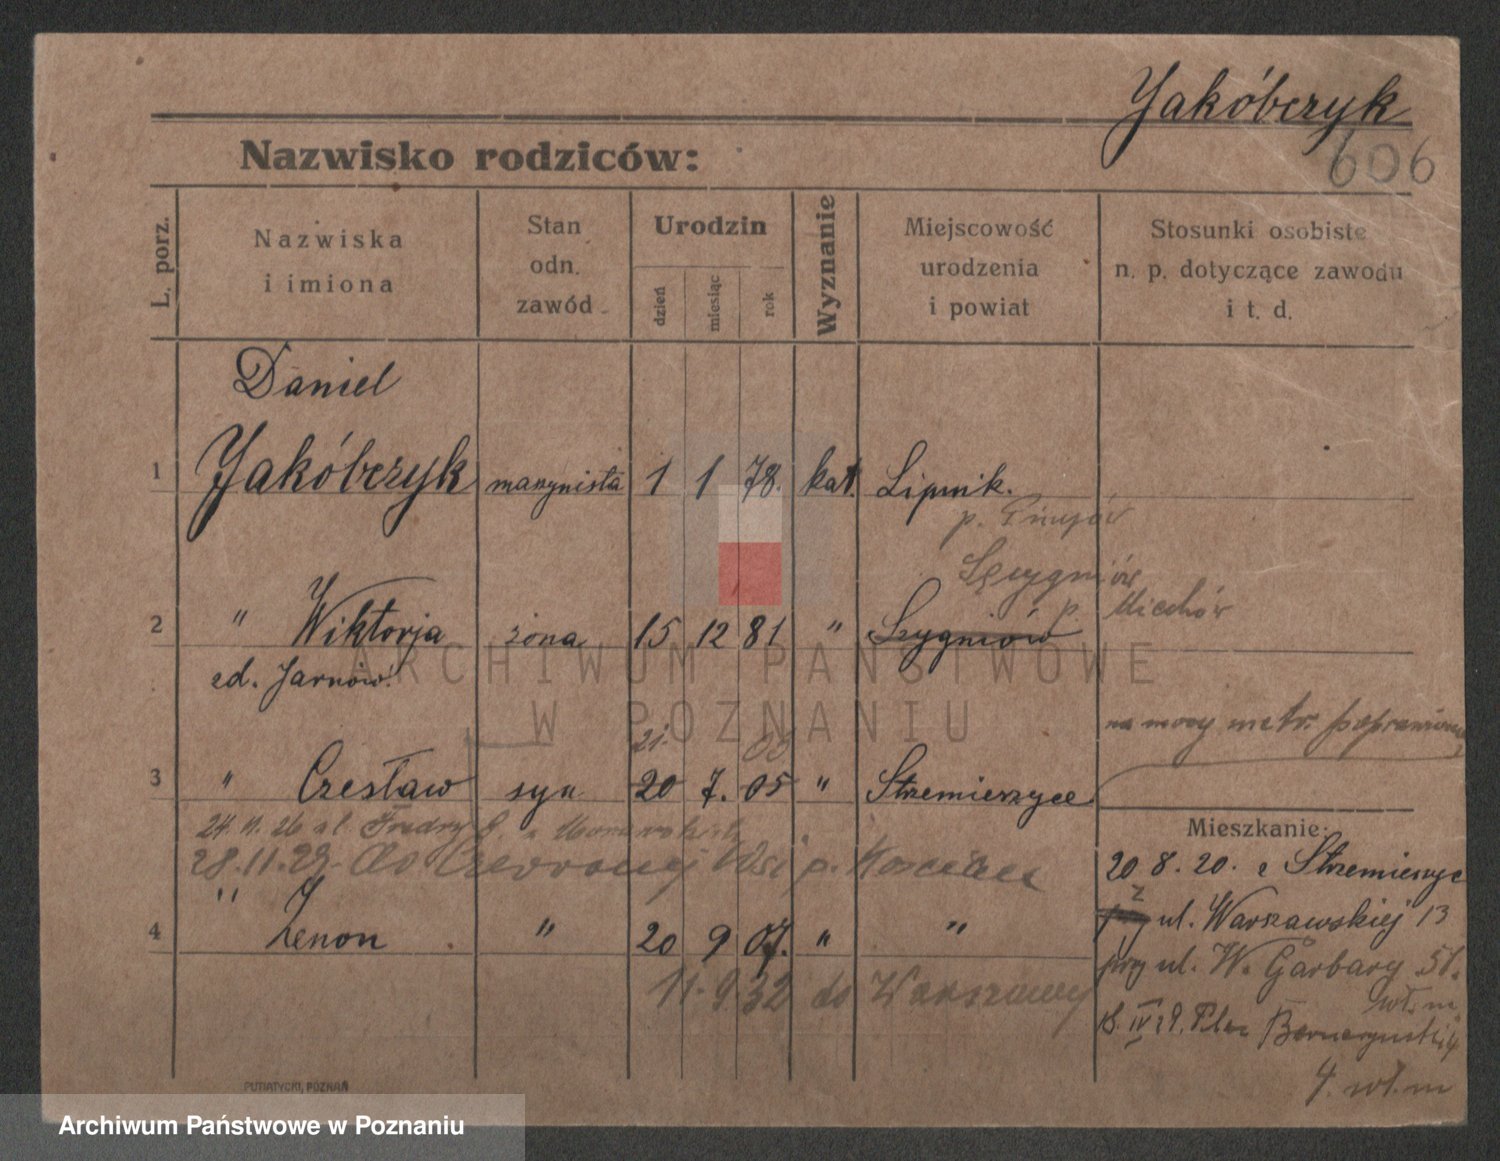 Jakóbczyk
606
Nazwisko rodziców:
L. porz.
Nazwiska
i imiona
Stan
odn.
zawód
Urodzin
dzień
miesiąc
rok
Wyznanie
Miejscowość
urodzenia
i powiat
Stosunki osobiste
n. p. dotyczące zawodu
i t. d.
Daniel
1 Jakóbczyk maszynista 1 1 78. kat. Lipnik.
p.
p. Miechów
2 " Wiktorja żona 15 12 81 " Szygniów
Jarnów
na mocy metr. poprawiono
21.
3 " Czesław syn 20 7. 05 " Strzemieszyce
24. 11. 26 ul. Fredry 8.
Mieszkanie:
28.11.29. do Czerwonej Wsi p. Kościan
20 8. 20. z Strzemieszyc
" z
ul. Warszawskiej 13
4 Zenon " 20 9 07. " "
przy ul. W. Garbary 51.
wł. m.
11. 9. 32 do Warszawy
18. IV 29. Plac Bernardyński 4
4. wł. m
PUTIATYCKI, POZNAŃ
ARCHIWUM PAŃSTWOWE
W POZNANIU
Archiwum Państwowe w Poznaniu